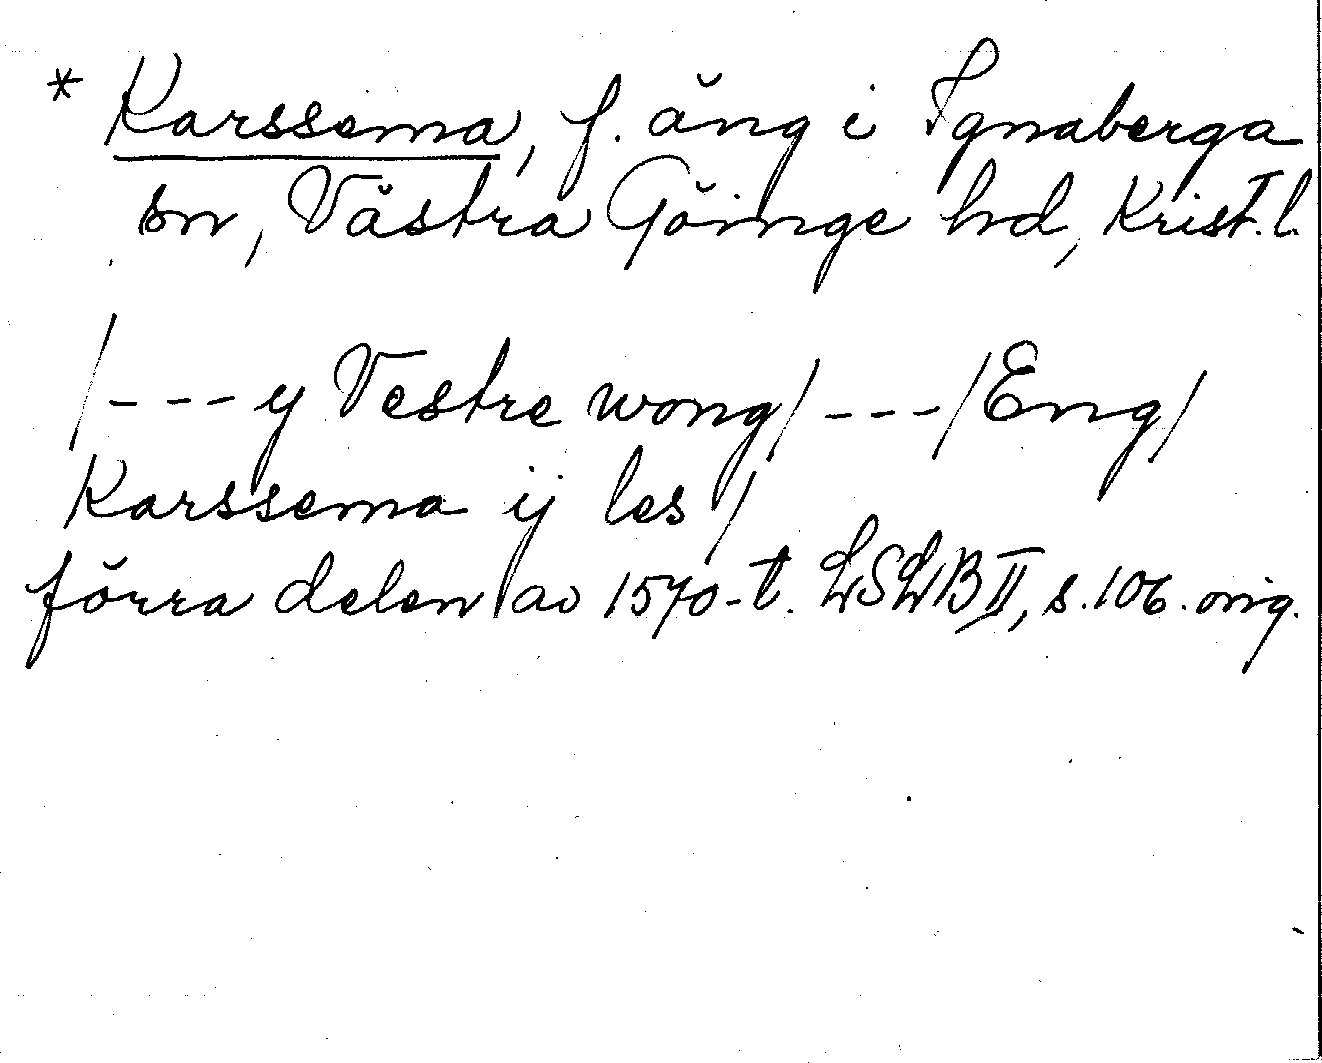 * Karssema, f. äng i Ignaberga
sn, Västra Göinge hd, Krist. l.
/--- y Vestre wong/ --- /Eng/
Karssema ij les/
förra delen av 1570-t. LSLB II, s. 106. orig.